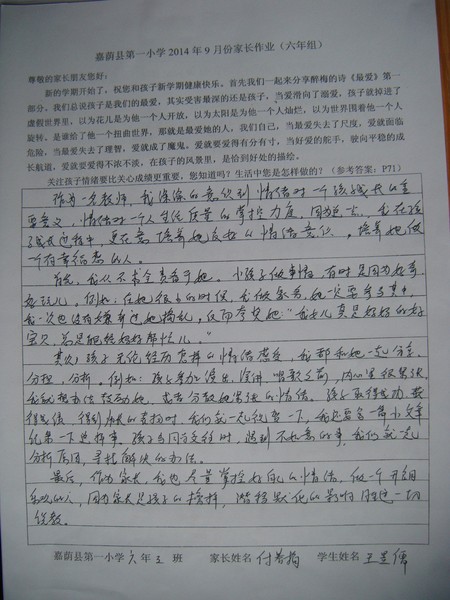 嘉荫县第一小学2014年9月份家长作业（六年组）
尊敬的家长朋友您好：
新的学期开始了，祝您和孩子新学期健康快乐。首先我们一起来分享醉梅的诗《最爱》第一
部分。我们总说孩子是我们的最爱，其实受害最深的还是孩子。当爱滑向了溺爱，孩子就掉进了
虚假世界里，以为花儿是为他一个人开放，以为太阳是为他一个人灿烂，以为世界围着他一个人
旋转。是谁给了他一个扭曲世界，那就是最爱她的人，我们自己，当最爱失去了尺度，爱就面临
危险。当最爱失去了理智，爱就成了魔鬼。爱就要爱得有分有寸，当好爱的舵手，驶向平稳的成
长航道，爱就要爱得不浓不淡，在孩子的风景里，是恰到好处的描绘。
关注孩子情绪要比关心成绩更重要，您知道吗？生活中您是怎样做的？（参考答案：P71）
作为一名教师，我深深的意识到情绪对一个孩子成长的重
要意义，情绪对一个人生活质量的掌控力度，因为，我在孩
子成长过程中，更在意培养她良好的情绪意识，培养她做
一个有幸福感的人。
首先，我从不求全责备于她。小孩子做事情，有时是因为好奇
好玩儿。例如：在她很小的时候，我做家务，她一定要参与其中，
我一次也没有嫌弃过她捣乱，反而夸奖她：“我女儿真是妈妈的好
宝贝，总是能给妈妈帮忙儿。”
其次，孩子无论经历怎样的情绪感受，我都和她一起分享、
分担、分析。例如：孩子参加演出、演讲、唱歌之前，内心里很紧张
我就想办法鼓励她，或者分散她紧张的情绪。孩子取得成功，获
得成绩，得到师长的表扬时，我们就一起祝贺一下，我还要写一篇小文章
纪念一下这件事。孩子与同学交往时，遇到不如意的事，我们就一起
分析原因，寻找解决的办法。
最后，作为家长，我也尽量掌控好自己的情绪，做一个开朗
乐观的人，因为家长是孩子的榜样，潜移默化的影响胜过一切
说教。
嘉荫县第一小学 六 年 三 班 家长姓名 付春梅 学生姓名 王